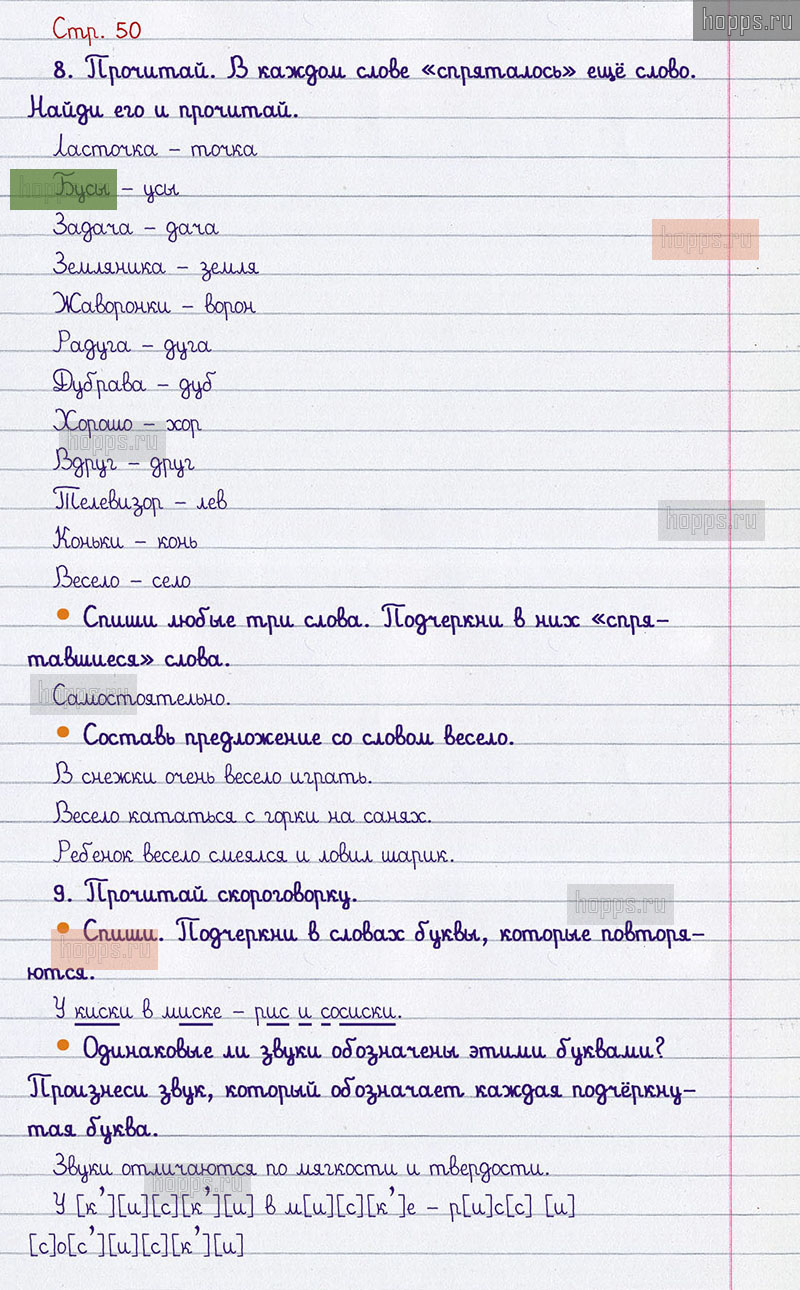 hopps.ru
Стр. 50
8. Прочитай. В каждом слове «спряталось» ещё слово.
Найди его и прочитай.
Ласточка – точка
Бусы – усы
Задача – дача
hopps.ru
Земляника – земля
Жаворонки – ворон
Радуга – дуга
Дубрава – дуб
Хорошо – хор
hopps.ru
Вдруг – друг
Телевизор – лев
hopps.ru
Коньки – конь
Весело – село
• Спиши любые три слова. Подчеркни в них «спря-
тавшиеся» слова.
hopps.ru
Самостоятельно.
• Составь предложение со словом весело.
В снежки очень весело играть.
Весело кататься с горки на санях.
Ребенок весело смеялся и ловил шарик.
9. Прочитай скороговорку.
hopps.ru
• Спиши. Подчеркни в словах буквы, которые повторя-
hopps.ru
ются.
У киски в миске – рис и сосиски.
• Одинаковые ли звуки обозначены этими буквами?
Произнеси звук, который обозначает каждая подчёркну-
тая буква.
Звуки отличаются по мягкости и твердости.
hopps.ru
У [к’][и][с][к’][и] в м[и][с][к’]е – р[и]с[с] [и]
[с]о[с’][и][с][к’][и]